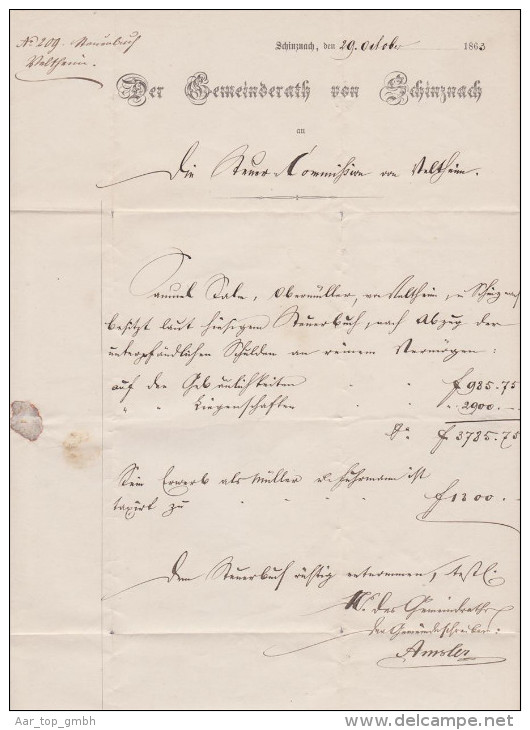 No 209. Steuerbuch
Veltheim.
Schinznach, den 29. October 1863
Der Gemeinderath von Schinznach
an
Die Steuer Commission von Veltheim.
Samuel Salm, Obermüller, von Veltheim, in Schinznach
besitzt laut hiesigem Steuerbuch, nach Abzug der
unterpfändlichen Schulden an reinem Vermögen:
auf den Gebäulichkeiten f 985.75
" " Liegenschaften " 2900. –
f. 3785.75
Sein Erwerb als Müller u. Fuhrmann ist
taxirt zu f 1200. –
Dem Steuerbuch richtig enthommen, testi
Ns. des Gemeindraths
der Gemeindschreiber:
Amsler
Aar_top_gmbh